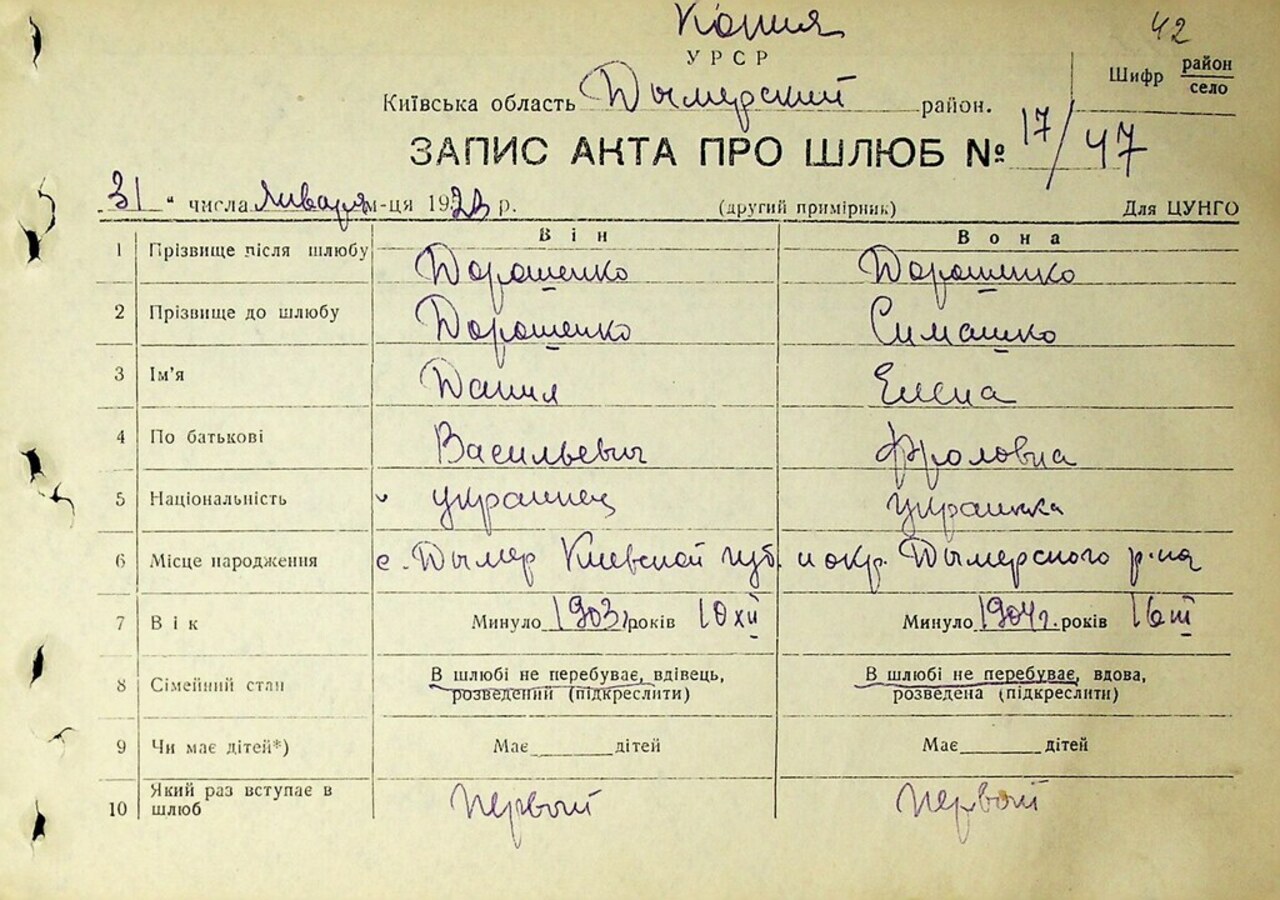 Копия
42
УРСР
Шифр район
село
Київська область Дымерский район.
ЗАПИС АКТА ПРО ШЛЮБ № 17/47
31 " числа Января м-ця 19 р. (другий примірник) Для ЦУНГО
Він Вона
1 Прізвище після шлюбу Дорошенко Дорошенко
2 Прізвище до шлюбу Дорошенко Симашко
3 Ім'я Данил Елена
4 По батькові Васильевич Фроловна
5 Національність украинец украинка
6 Місце народження с. Дымер Киевской губ. и окр. Дымерского р-на
7 Вік Минуло 1903 г. років 10 XII Минуло 1904 г. років 16 III
8 Сімейний стан В шлюбі не перебуває, вдівець, В шлюбі не перебуває, вдова,
розведений (підкреслити) розведена (підкреслити)
9 Чи має дітей*) Має дітей Має дітей
10 Який раз вступає в шлюб первый первый